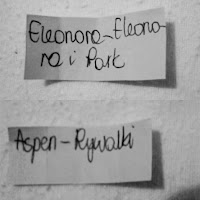 Eleonora-Eleono-
ra i Park
Aspen-Rywalki